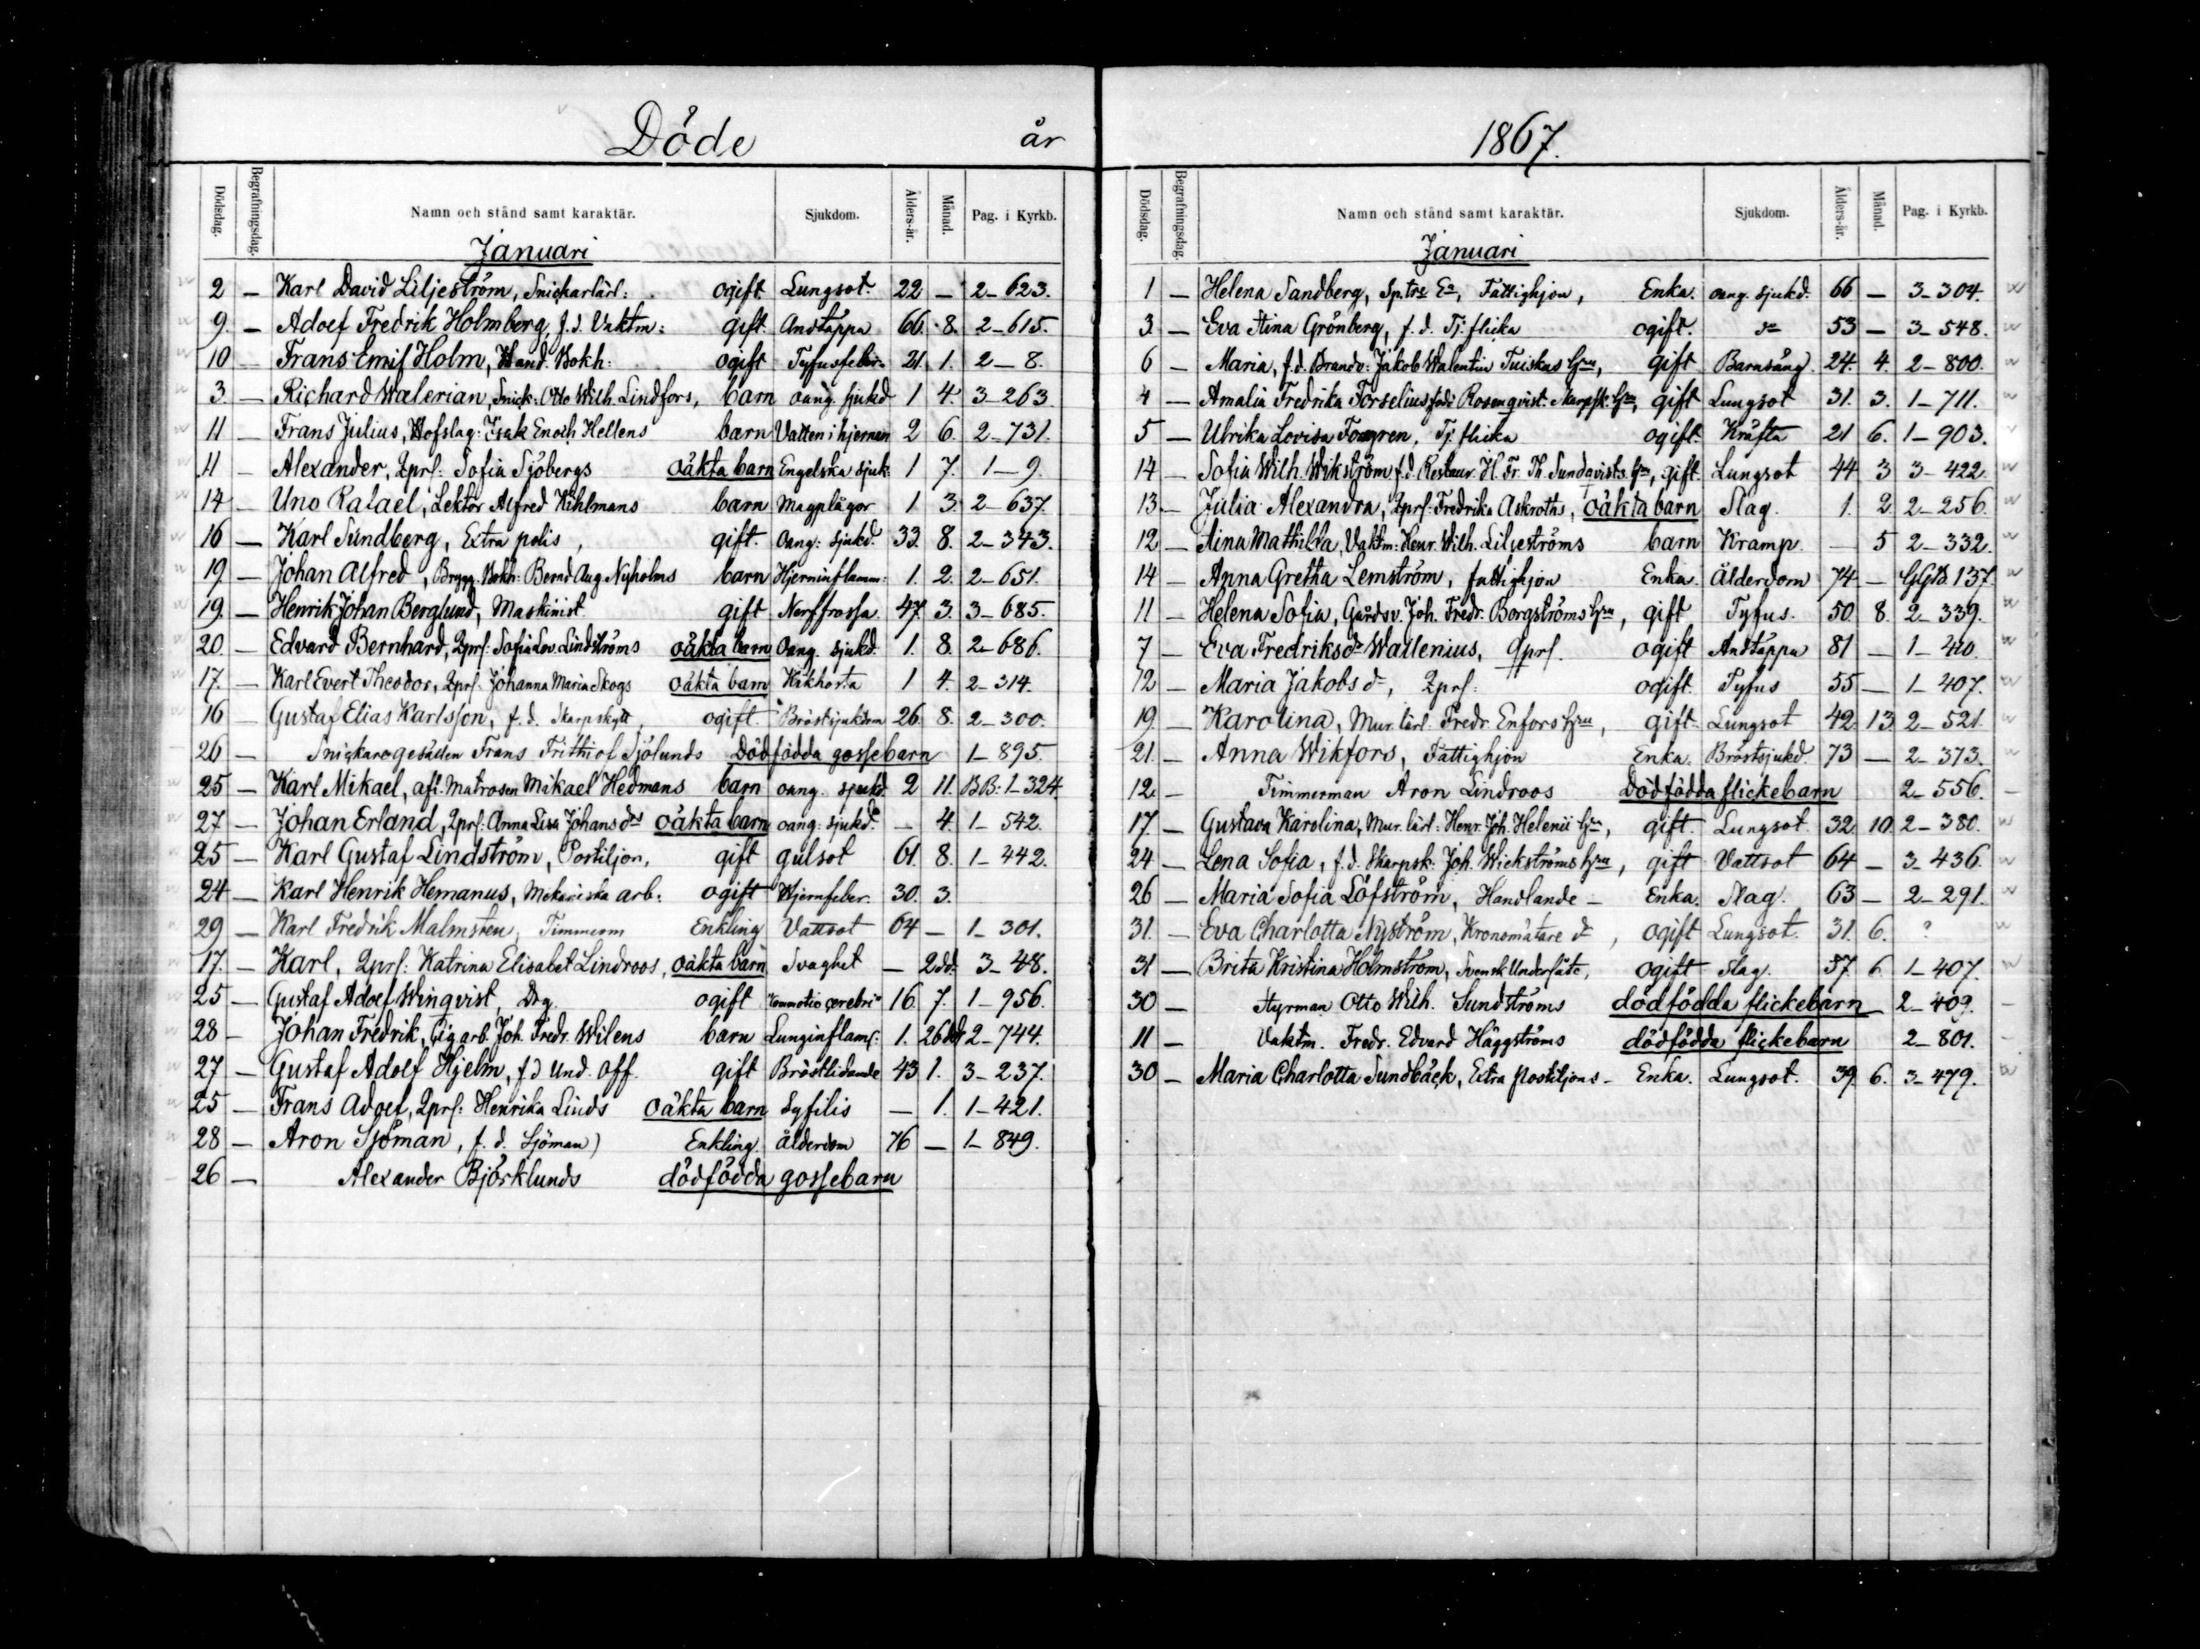 Döde år
Dödsdag. Begrafningsdag. Namn och stånd samt karaktär. Sjukdom. Ålders-år. Månad. Pag. i Kyrkb.
Januari
2 — Karl David Liljeström, Snickarlärl: ogift Lungsot 22 — 2–623.
9. — Adolf Fredrik Holmberg, f.d. Vaktm: gift. Andtäppa 66. 8. 2–615.
10 — Frans Emil Holm, Hand. Bokh: ogift Tyfusfeber 21. 1. 2–8.
3. — Richard Walerian, Snick: Otto Wilh. Lindfors, barn oang. sjukd 1 4 3–263
11 — Frans Julius, Hofslag: Isak Enoch Hellens barn Vatten i hjernan 2 6. 2–731.
11 — Alexander, Qprs: Sofia Sjöbergs oäkta barn Engelska sjuk. 1 7. 1–9.
14 — Uno Rafael, Lektor Alfred Kihlmans barn Magplågor 1 3. 2–637.
16 — Karl Sundberg, Extra polis, gift. Oang: sjukd. 33. 8. 2–343.
19. — Johan Alfred, Brygg. Bokh: Bernd Aug. Nyholms barn Hjerninflamm: 1. 2. 2–651.
19. — Henrik Johan Berglund, Maskinist gift Nerffrossa 47. 3. 3–685.
20. — Edvard Bernhard, Qprs: Sofia Lov. Lindströms oäkta barn Oang. sjukd. 1. 8. 2–686.
17. — Karl Evert Theodor, Qprs. Johanna Maria Skogs oäkta barn Kikhosta 1 4. 2–314.
16 — Gustaf Elias Karlsson, f.d. Skarpskytt, ogift. Bröstsjukdom 26. 8. 2–300.
26 — Snickaregesällen Frans Frithiof Sjölunds Dödfödda gossebarn 1–895.
25 — Karl Mikael, afl. Matrosen Mikael Hedmans barn oang. sjukd. 2 11. BB: 1–324.
27 — Johan Erland, Qprs: Anna Lisa Johansdrs oäkta barn oang: sjukd. — 4. 1–542.
25 — Karl Gustaf Lindström, Postiljon, gift gulsot 61. 8. 1–442.
24 — Karl Henrik Hemanus, Mekaniska arb. ogift Hjernfeber. 30. 3.
29 — Karl Fredrik Malmsten, Timmerm Enkling Vattsot 64 — 1–301.
17. — Karl, Qprs: Katrina Elisabet Lindroos, oäkta barn Svaghet — 2dd. 3–48.
25 — Gustaf Adolf Winqvist, Drg. ogift Kommotio cerebri 16. 7. 1–956.
28 — Johan Fredrik, Cig arb. Joh. Fredr. Wilens barn Lunginflam: 1. 26dd 2–744.
27 — Gustaf Adolf Hjelm, f.d Und. Off. gift Bröstlidande 43 1. 3–237.
25 — Frans Adolf, Qprs: Henrika Linds oäkta barn Syfilis — 1. 1–421.
28 — Aron Sjöman, f. d. Sjöman) Enkling. Ålderdom 76 — 1–849.
26 — Alexander Björklunds dödfödda gossebarn
1867.
Dödsdag. Begrafningsdag. Namn och stånd samt karaktär. Sjukdom. Ålders-år. Månad. Pag. i Kyrkb.
Januari
1 — Helena Sandberg, Fattighjon, Enka. oang. sjukd. 66 — 3–304.
3. — Eva Stina Grönberg, f. d. Tj. flicka ogift. do 53 — 3–548.
6 — Maria, f.d. Brandv: Jakob Walentin Tuiskus Hru, gift Barnsäng 24. 4. 2–800.
4 — Amalia Fredrika Forselius född Rosenqvist. Skarpsk. Hru, gift Lungsot 31. 3. 1–711.
5 — Ulrika Lovisa Forgren, Tj. flicka ogift. Kräfta 21 6. 1–903.
14 — Sofia Wilh. Wikström f.d. Restaur. H. Fr. Th. Sundqvists. Hru, gift. Lungsot 44 3 3–422.
13 — Julia Alexandra, Qprs: Fredrika Askroths, oäkta barn Slag. 1. 2. 2–256.
12 — Aina Mathilda, Vaktm: Henr. Wilh. Liljeströms barn Kramp. — 5 2–332.
14 — Anna Gretha Lemström, fattighjon Enka. Ålderdom 74 — GGB 137.
11 — Helena Sofia, Gårdsv. Joh. Fredr. Borgströms Hru, gift Tyfus. 50. 8. 2–339.
7 — Eva Fredriksdr Wallenius, Qprs. ogift Andtäppa 81 — 1–420.
12 — Maria Jakobsdr, Qprs: ogift. Tyfus 55 — 1–407.
19. — Karolina, Mur. lärl. Fredr. Enfors Hru, gift. Lungsot 42. 13. 2–521.
21. — Anna Wikfors, Fattighjon Enka. Bröstsjukd. 73 — 2–373.
12. — Timmerman Aron Lindroos Dödfödda flickebarn 2–556.
17 — Gustava Karolina, Mur. lärl: Henr. Joh. Helenii Hru, gift. Lungsot. 32. 10. 2–380.
24 — Lena Sofia, f.d. Skarpsk. Joh. Wickströms Hru, gift Vattsot 64 — 3–436.
26 — Maria Sofia Löfström, Handlande – Enka. Slag. 63 — 2–291.
31. — Eva Charlotta Nyström, Kronomätare dr, ogift Lungsot. 31. 6. ?
31 — Brita Kristina Holmström, Svensk Undersåte, ogift Slag. 37. 6. 1–407.
30 — Styrman Otto Wilh. Sundströms dödfödda flickebarn 2–409.
11 — Vaktm. Fredr. Edvard Häggströms dödfödda flickebarn 2–801.
30 — Maria Charlotta Sundbäck, Extra postiljons – Enka. Lungsot. 39. 6. 3–479.